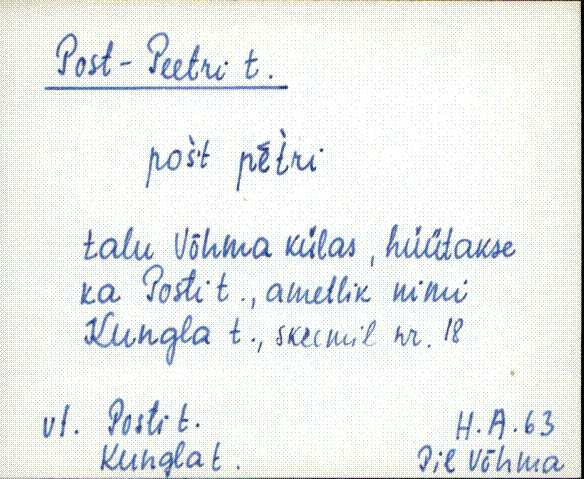 Post-Peetri t.
poš̀t pēt̀ri
talu Võhma külas, hüütakse
ka Posti t., ametlik nimi
Kungla t., skeemil nr. 18
vt. Posti t.
Kungla t.
H.A. 63
Pil Võhma